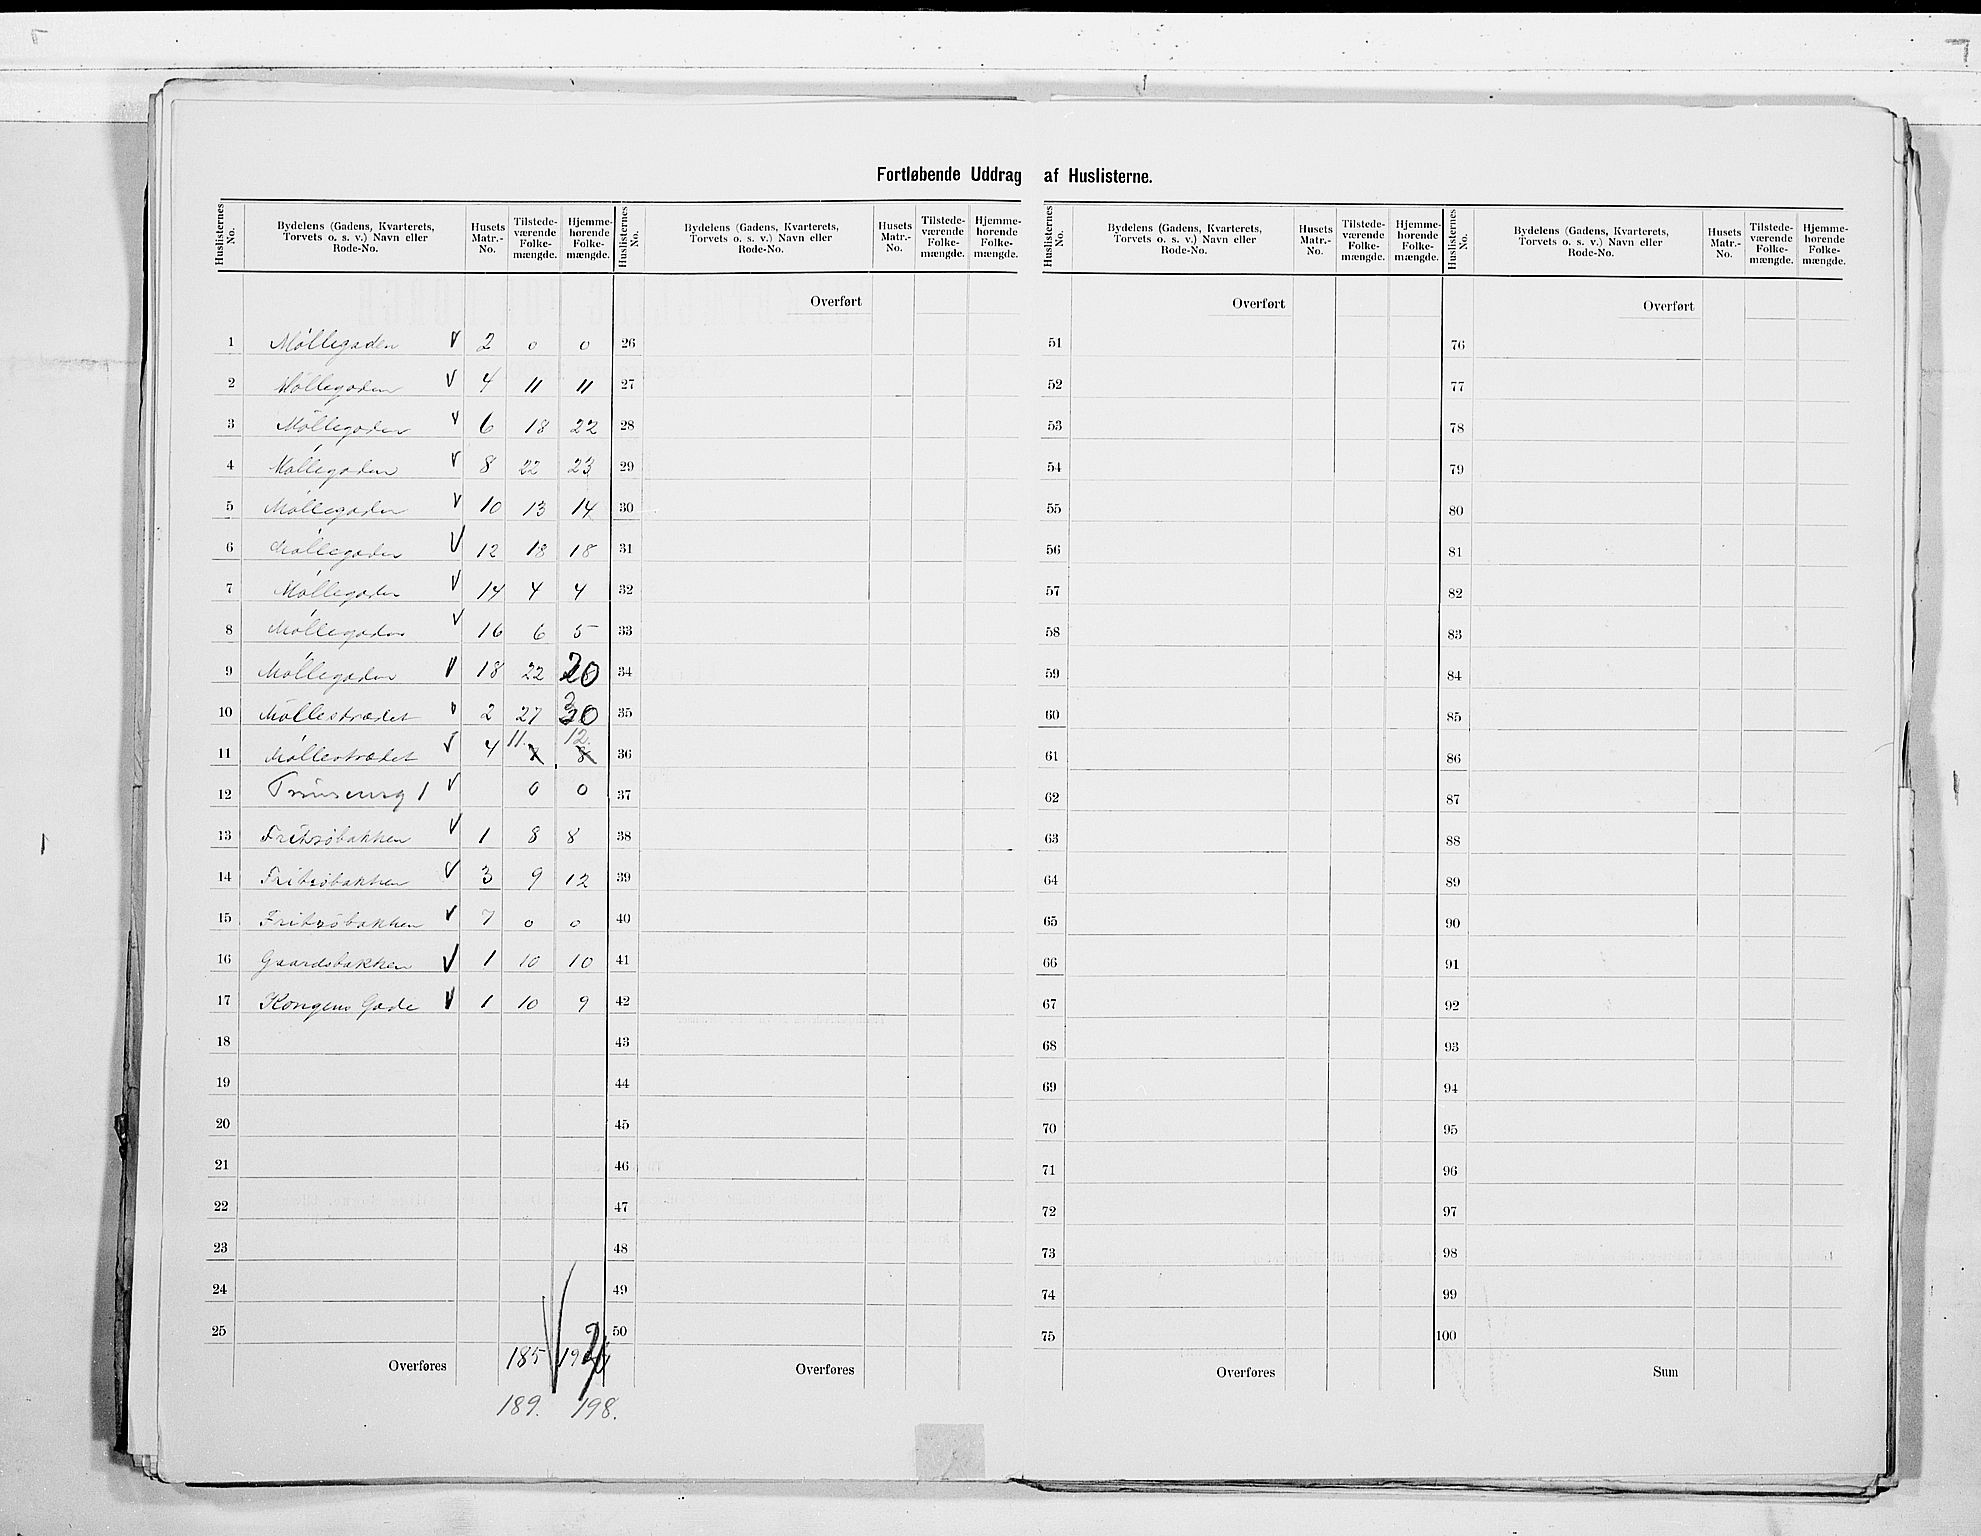 Fortløbende Uddrag af Huslisterne.
Huslisternes No. | Bydelens (Gadens, Kvarterets, Torvets o. s. v.) Navn eller Rode-No. | Husets Matr.-No. | Tilstedeværende Folkemængde. | Hjemmehørende Folkemængde. | Huslisternes No. | Bydelens (Gadens, Kvarterets, Torvets o. s. v.) Navn eller Rode-No. | Husets Matr.-No. | Tilstedeværende Folkemængde. | Hjemmehørende Folkemængde. | Huslisternes No. | Bydelens (Gadens, Kvarterets, Torvets o. s. v.) Navn eller Rode-No. | Husets Matr.-No. | Tilstedeværende Folkemængde. | Hjemmehørende Folkemængde. | Huslisternes No. | Bydelens (Gadens, Kvarterets, Torvets o. s. v.) Navn eller Rode-No. | Husets Matr.-No. | Tilstedeværende Folkemængde. | Hjemmehørende Folkemængde.
Overført Overført Overført
1 Møllegaden V 2 0 0 26 51 76
2 Møllegaden V 4 11 11 27 52 77
3 Møllegaden V 6 18 22 28 53 78
4 Møllegaden V 8 22 23 29 54 79
5 Møllegaden V 10 13 14 30 55 80
6 Møllegaden V 12 18 18 31 56 81
7 Møllegaden V 14 4 4 32 57 82
8 Møllegaden V 16 6 5 33 58 83
9 Møllegaden V 18 22 20 34 59 84
10 Møllestrædet V 2 27 30 35 60 85
11. 12.
11 Møllestrædet V 4 7 8 36 61 86
12 1 V 0 0 37 62 87
13 Fritzøbakken V 1 8 8 38 63 88
14 Fritzøbakken V 3 9 12 39 64 89
15 Fritzøbakken V 7 0 0 40 65 90
16 Gaardsbakken V 1 10 10 41 66 91
17 Kongens Gade V 1 10 9 42 67 92
18 43 68 93
19 44 69 94
20 45 70 95
21 46 71 96
22 47 72 97
23 48 73 98
24 49 74 99
25 50 75 100
Overføres 185 Overføres Overføres Sum
189. 198.